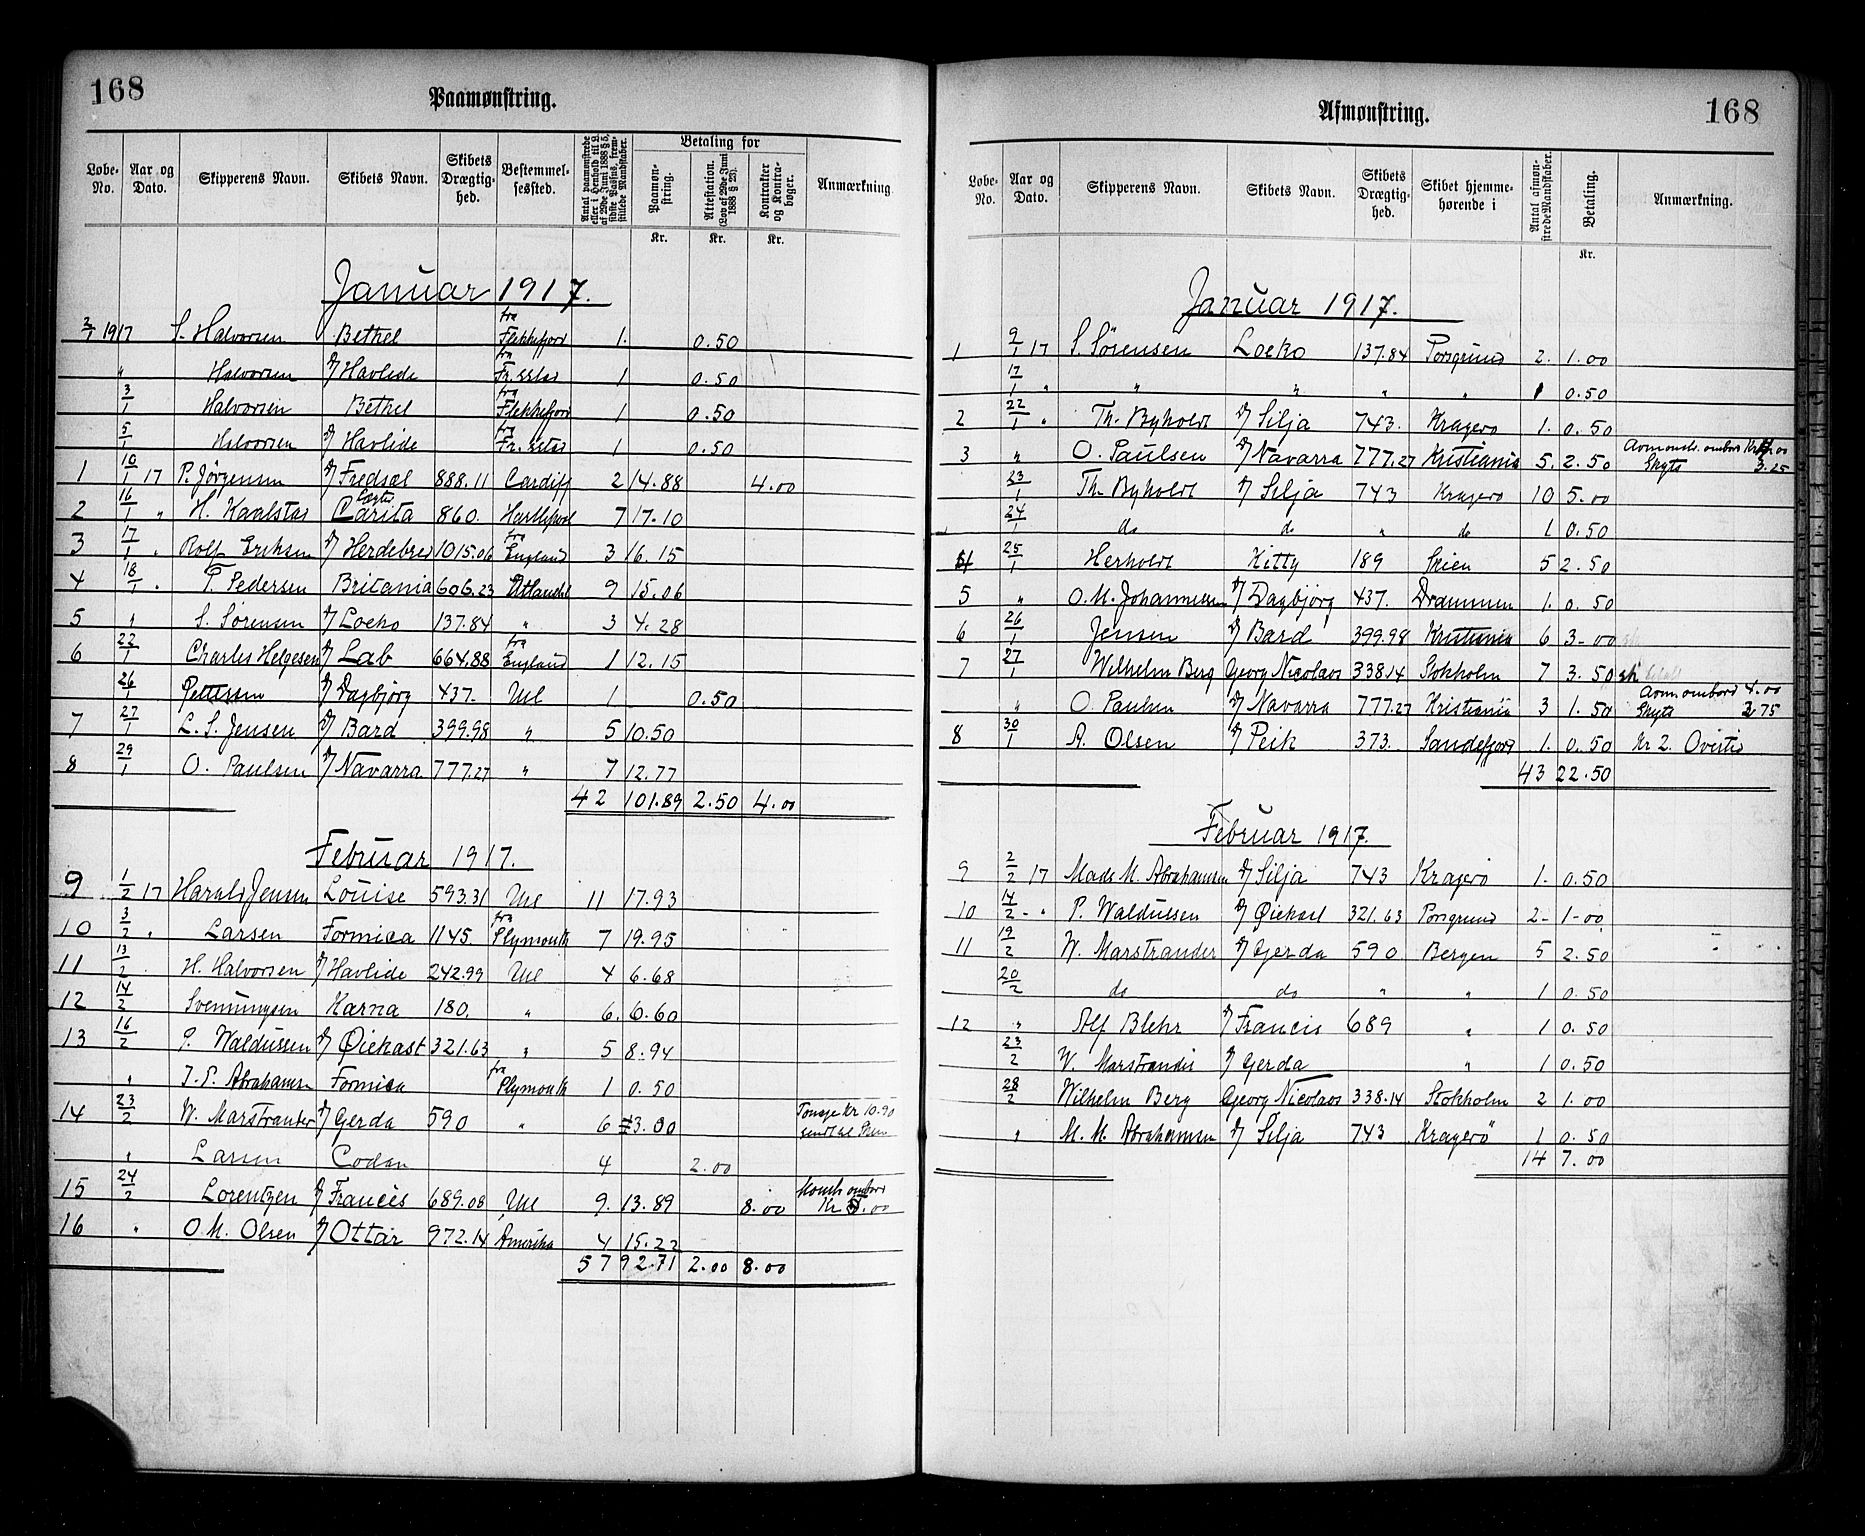 168
Paamønstring.
Løbe-No. Aar og Dato. Skipperens Navn. Skibets Navn. Skibets Drægtighed. Bestemmelsessted. Antal paamønstrede eller i Henhold til L. af 29de Juni 1888 § 5, sidste Passus, fremstillede Mandskaber. Betaling for Paamønstring. Attestation. (Lov af 29de Juni 1888 § 23). Kontrakter og Kontrabøger. Anmærkning
Kr. Kr. Kr.
Januar 1917.
2/1 1917 S. Halvorsen Bethel fra Flekkefjord 1. 0.50
" Halvorsen D/ Havlide fra Fr.stad 1 0.50
3/1 Halvorsen Bethel fra Flekkefjord 1 0.50
5/1 Halvorsen D/ Havlide fra Fr.stad 1 0.50
1 10/1 17 P. Jørgensen D/ Fredsæl 888.11 Cardiff 2 14.88 4.00
2 16/1 " H. Kaalstad Carita 860. Hartlepool 7 17.10
3 17/1 " Rolf Eriksen D/ Herdebred 1015.06 fra England 3 16.15
4 18/1 " T. Pedersen Britania 606.23 Utlandet 9 15.06
5 " S. Sørensen D/ Loeko 137.84 " 3 4.28
6 22/1 Charles Helgesen D/ Lab 664.88 fra England 1 12.15
26/1 Pettersen D/ Dagbjørg 437. Utl 1 0.50
7 27/1 L. S. Jensen D/ Bard 399.98 " 5 10.50
8 29/1 O. Paulsen D/ Navarra 777.27 " 7 12.77
42 101.89 2.50 4.00
Februar 1917.
9 1/2 17 Harald Jensen Louise 593.31 Utl 11 17.93
10 3/2 " Larsen Formica 1145. fra Plymouth 7 19.95
11 13/2 H. Halvorsen D/ Havlide 242.99 Utl 4 6.68
12 14/2 Svenningsen Karna 180. " 6. 6.60
13 16/2 P. Waldussen D/ Øiekast 321.63 " 5 8.94
" J. P. Abrahamsen Formica fra Plymouth 1 0.50
14 23/2 W. Marstrander D/ Gerda 590 " 6 3.00 Tonage Kr 10.90 sendt til
" Larsen Codan 4 2.00
15 24/2 Lorentzen D/ Francis 689.08 Utl 9. 13.89 8.00 Mønstr ombord Kr .00
16 " O. M. Olsen D/ Ottar 972.14 Amerika 4 15.22
57 92.71 2.00 8.00
Afmønstring.
168
Løbe-No. Aar og Dato. Skipperens Navn. Skibets Navn. Skibets Drægtighed. Skibet hjemmehørende i Antal afmønstrede Mandskaber. Betaling. Anmærkning.
Kr.
Januar 1917.
1 9/1 17 S. Sørensen Loeko 137.84 Porsgrund 2. 1.00
17/1 " " " " " 1 0.50
2 22/1 " Th. Byholdt D/ Silja 743. Kragerø 1. 0.50
3 " O. Paulsen D/ Navarra 777.27 Kristiania 5. 2.50 Avmønst. ombord Kr .00 Skyts 3.25
23/1 Th. Byholdt D/ Silja 743 Kragerø 10 5.00
24/1 do do " do 1 0.50
4 25/1 Herholdt Kitty 189 Skien 5 2.50
5 " O. M. Johannessen D/ Dagbjørg 437. Drammen 1. 0.50
6 26/1 Jensen D/ Bard 399.98 Kristiania 6 3.00
7 27/1 Wilhelm Berg Georg Nicolaos 338.14 Stokholm 7 3.50
" O. Paulsen D/ Navarra 777.27 Kristiania 3 1.50 Avm. ombord 4.00 Skyts 2.75
8 30/1 A. Olsen D/ Peik 373. Sandefjord 1. 0.50 Kr 2. Overtid
43 22.50
Februar 1917.
9 2/2 17 Mads M. Abrahamsen D/ Silja 743 Kragerø 1. 0.50
10 14/2 - " P. Waldussen D/ Øiekast 321.63 Porsgrund 2 - 1-00
11 19/2 W. Marstrander D/ Gerda 590 Bergen 5 2.50
20/2 do do " " 1 0.50
12 " Alf Blehr D/ Francis 689 " 1 0.50
23/2 W. Marstrander D/ Gerda " 1 0.50
28/2 Wilhelm Berg Georg Nicolaos 338.14 Stokholm 2 1.00
" M. M. Abrahamsen D/ Silja 743 Kragerø 1 0.50
14 7.00